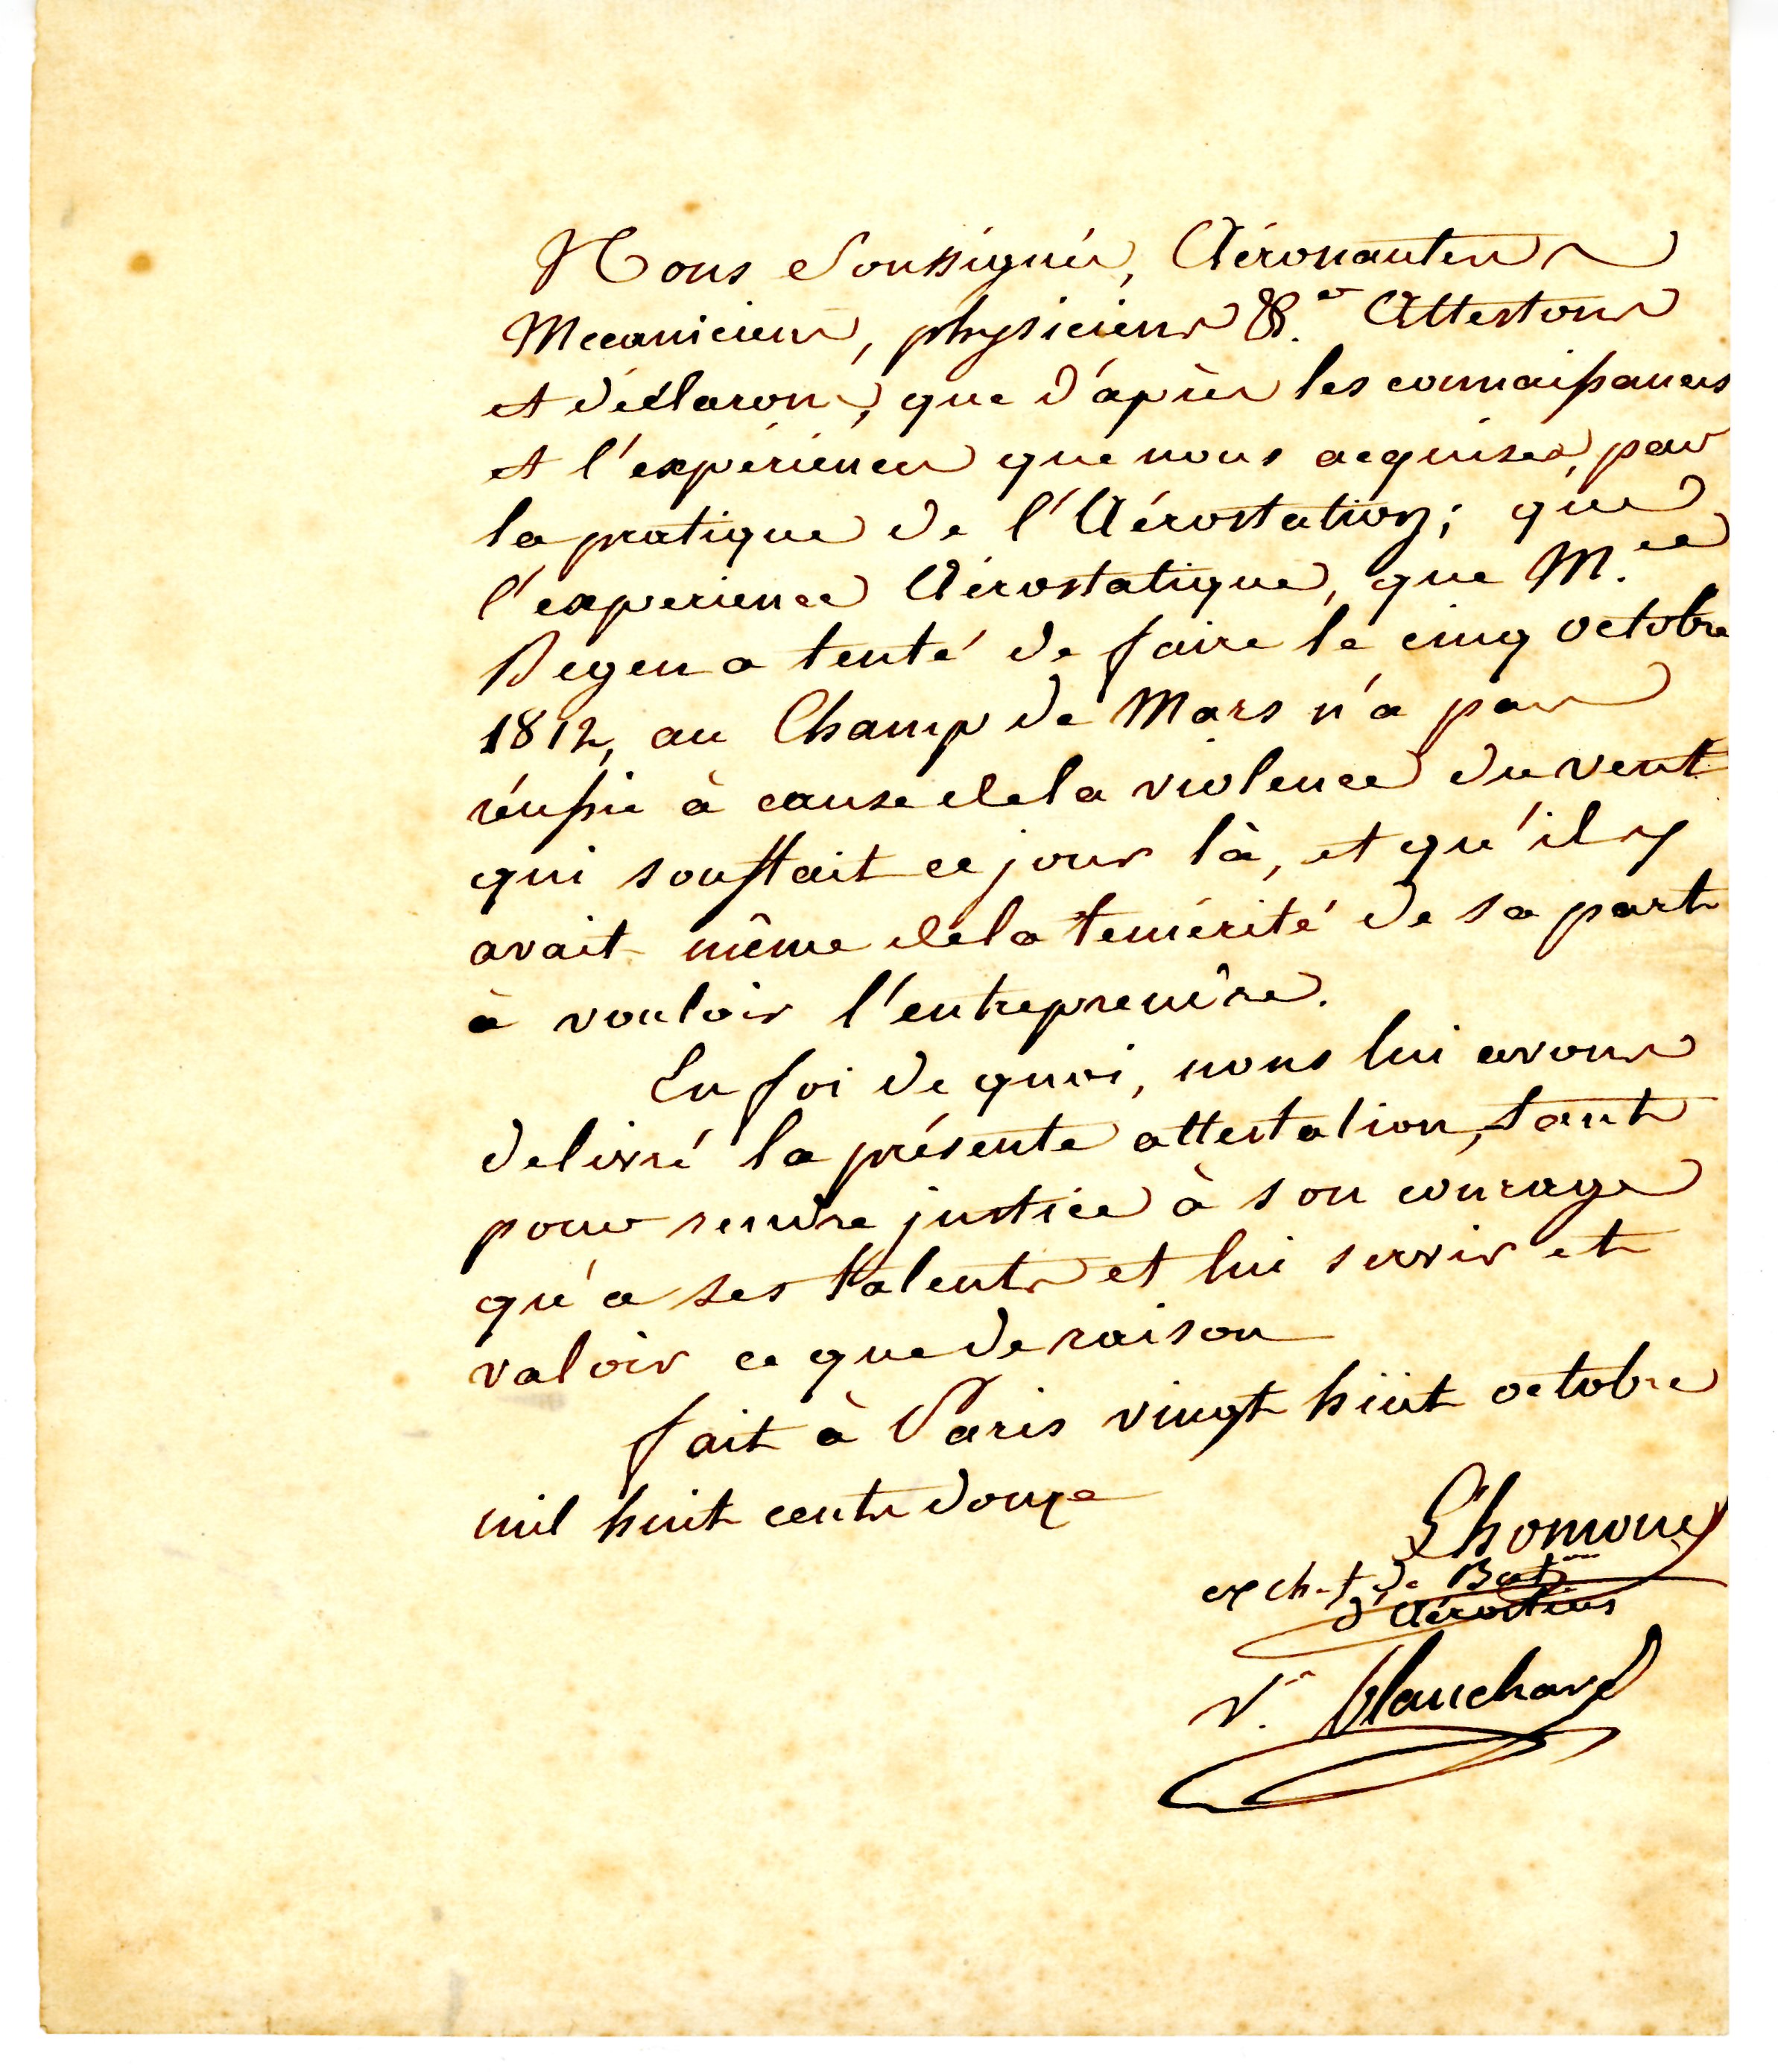 Nous Soussignés, Aéronautes
Mecaniciens, physiciens &.ca Attestons
et déclarons, que d'après les connaissances
et l'expériences que nous acquises, par
la pratique de l'Aérostation; que
l'experience Aérostatique, que M.
Degen a tenté de faire le cinq octobre
1812, au Champ de Mars n'a pas
réussie à cause de la violence du vent
qui soufflait ce jour là, et qu'il y
avait même de la temérité de sa part
à vouloir l'entreprendre.
En foi de quoi, nous lui avons
delivré la présente attestation, tant
pour rendre justice à son courage
qu'a ses talents et lui servir et
valoir ce que de raison
fait à Paris vingt huit octobre
mil huit cents douze
Lhomond
ex ch.f de Bat.on
d'Aérostiers
V.e Blanchard